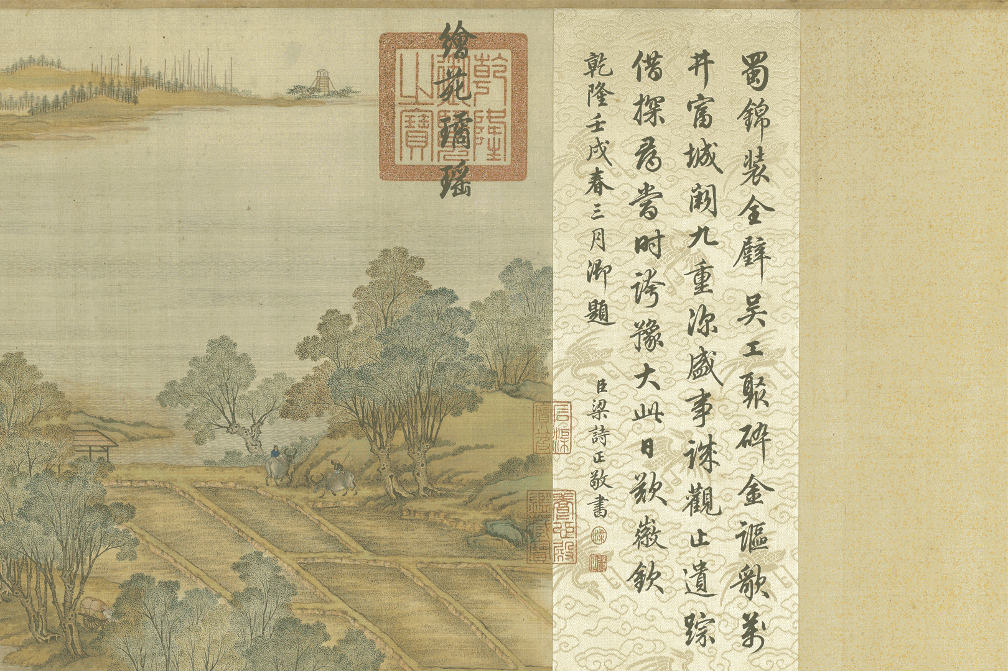 蜀錦装全璧吳工聚碎金謳歌萬
井富城闕九重深盛事誠觀止遺踪
借探尋當時誇豫大此日歎徽欽
乾隆壬戌春三月御題
臣梁詩正敬書
繪苑璚瑤
乾隆
御覽
之寶